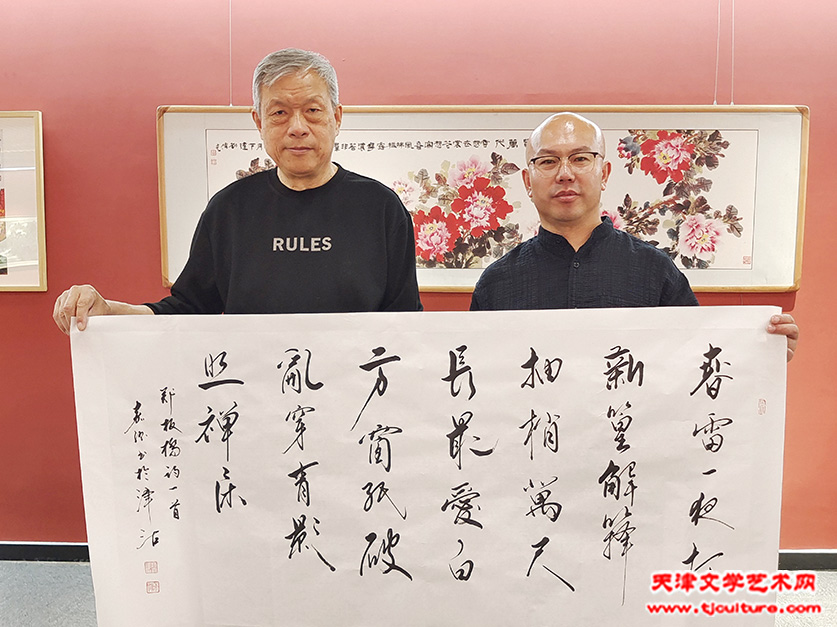 RULES
春雷一夜打
新篁解籜
抽梢萬尺
長最愛白
方窗紙破
亂穿青影
照禅床
郑板橋诗一首
书於津沽
天津文学艺术网
www.tjculture.com